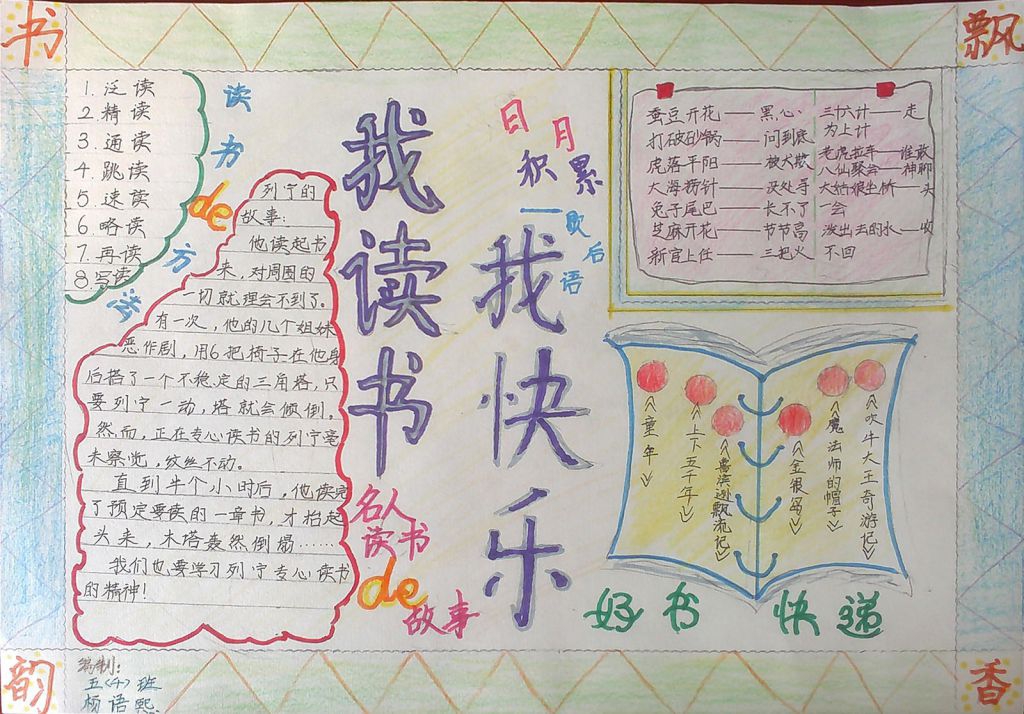 书
飘
韵
香
我读书
我快乐
读书de方法
1. 泛读
2 精读
3. 通读
4. 跳读
5 速读
6 略读
7. 再读
8. 写读
列宁的
故事:
他读起书
来，对周围的
一切就理会不到了。
有一次，他的几个姐妹
恶作剧，用6把椅子在他身
后搭了一个不稳定的三角塔，只
要列宁一动，塔就会倾倒。
然而，正在专心读书的列宁毫
未察觉，纹丝不动。
直到半个小时后，他读完
了预定要读的一章书，才抬起
头来，木塔轰然倒塌……
我们也要学习列宁专心读书
的精神！
名人
读书
de
故事
日月
积累
—歇后语
蚕豆开花——黑心
打破砂锅——问到底
虎落平阳——被犬欺
大海捞针——没处寻
兔子尾巴——长不了
芝麻开花——节节高
新官上任——三把火
三十六计——走
为上计
老虎拉车——谁敢
八仙聚会——神聊
大姑娘坐轿——头
一会
泼出去的水——收
不回
《童年》
《上下五千年》
《鲁滨逊飘流记》
《金银岛》
《魔法师的帽子》
《吹牛大王奇游记》
好书 快递
编制:
五〈4〉班
杨语熙